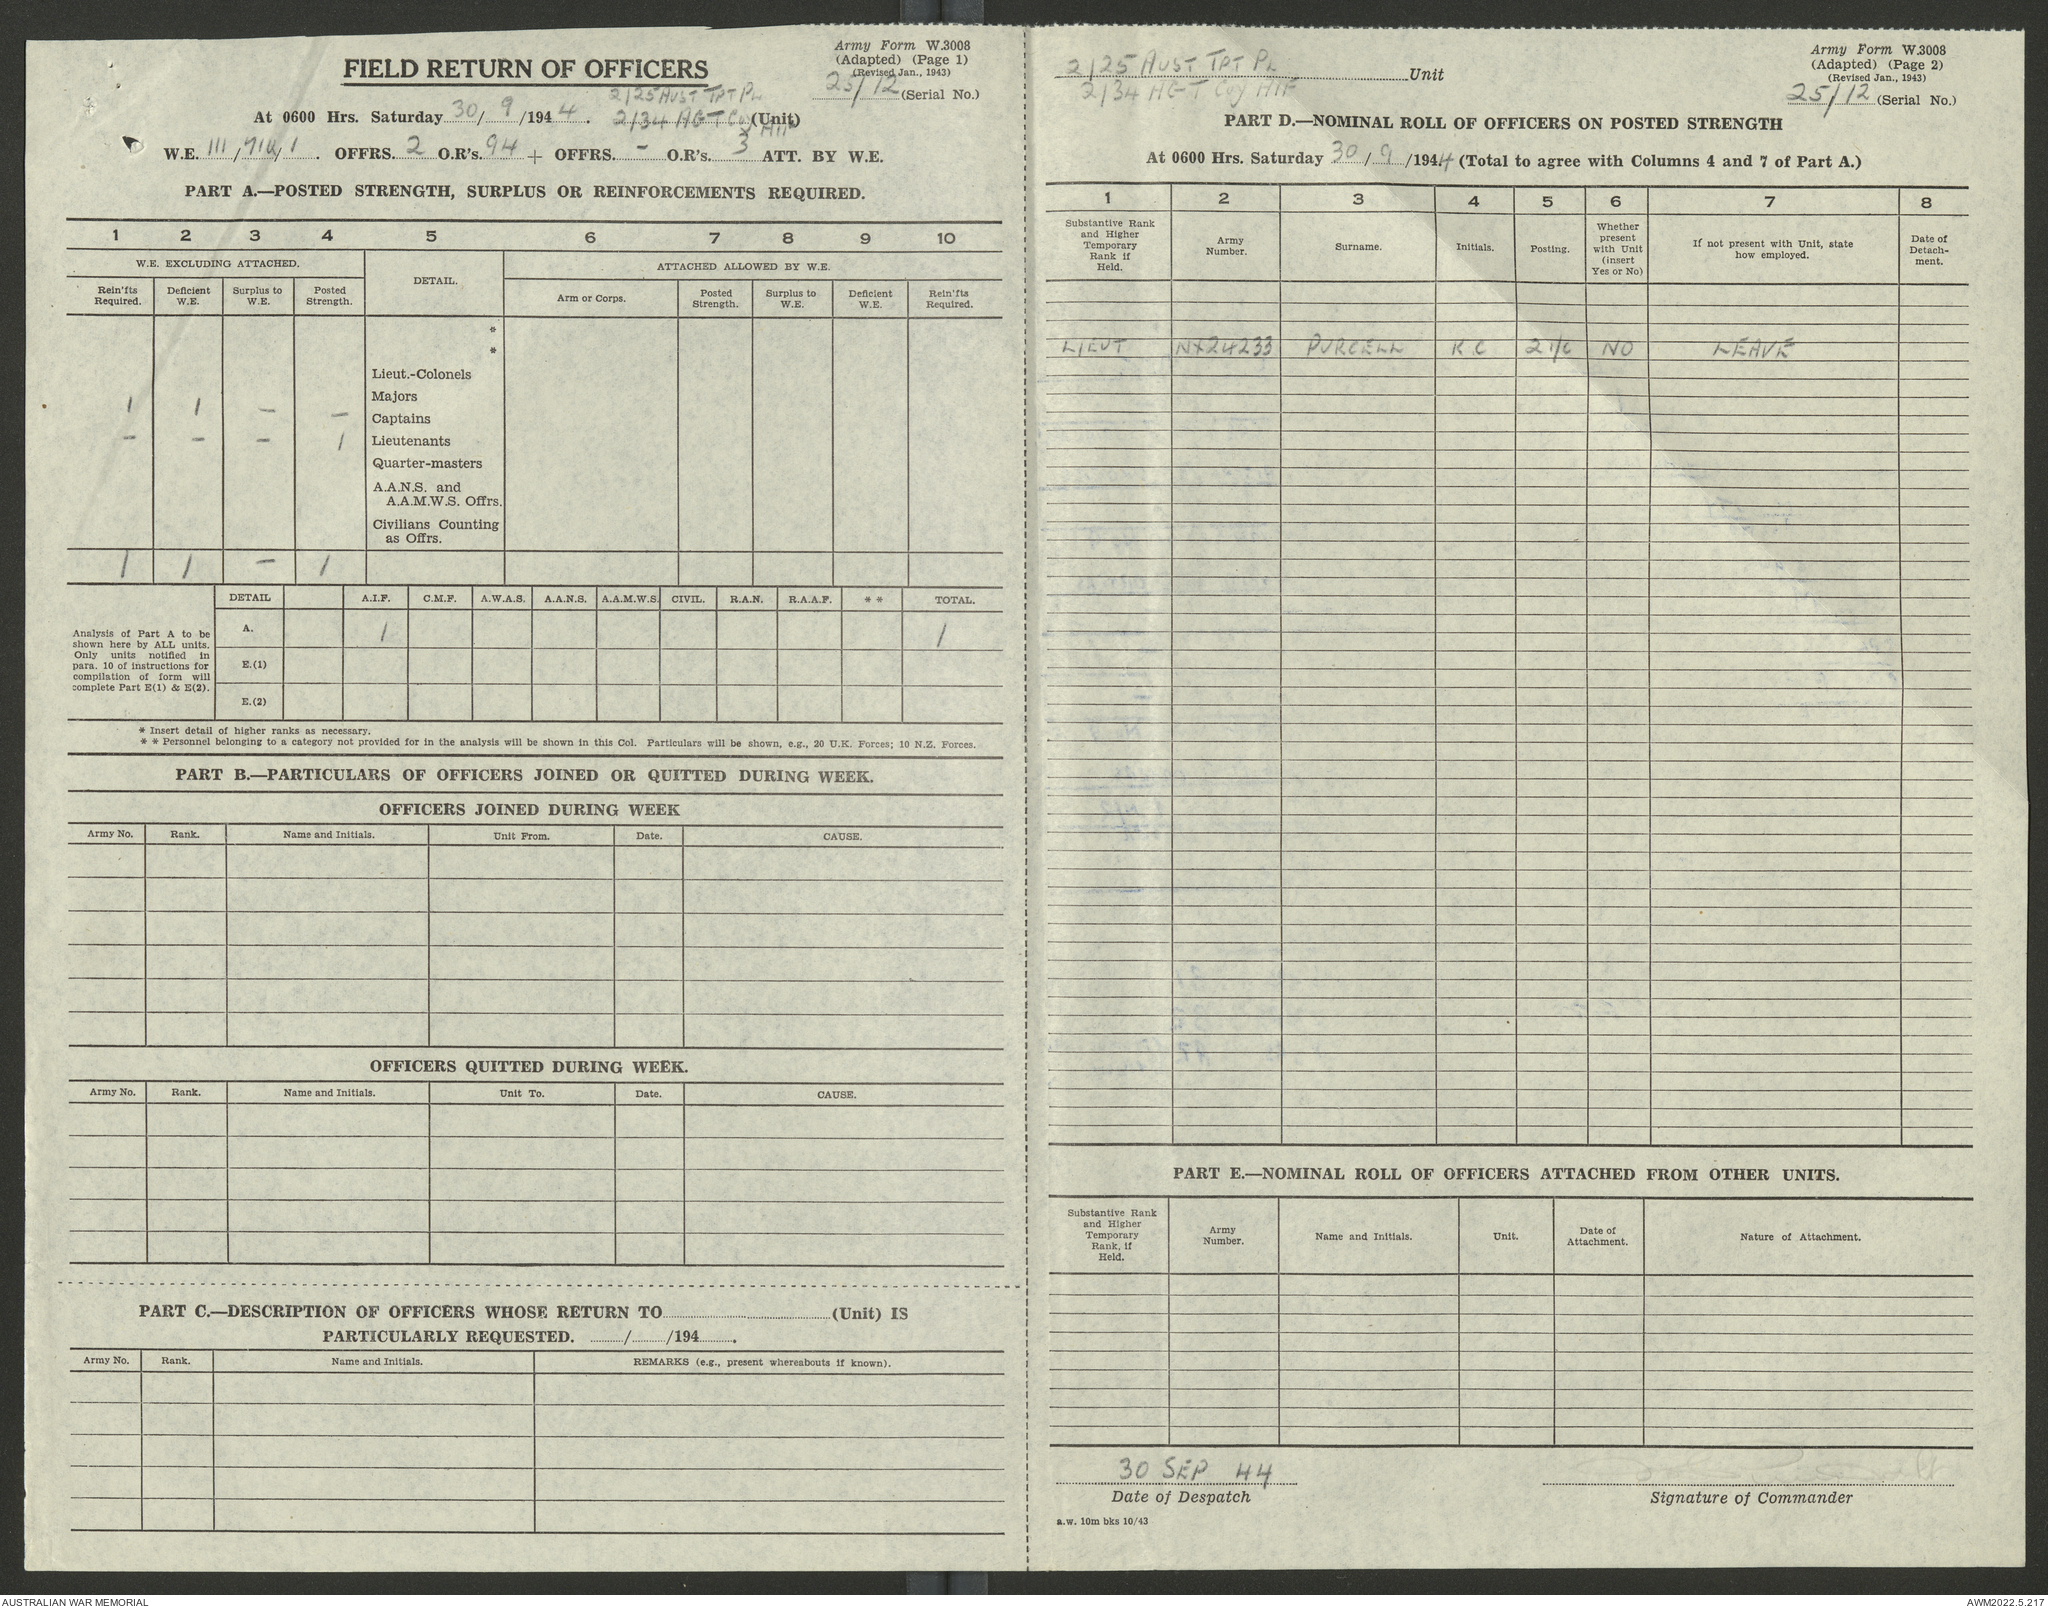 Army Form W.3008
(Adapted) (Page 1)
(Revised Jan., 1943)
25/12 (Serial No.)
FIELD RETURN OF OFFICERS
2/25 AUST TPT PL
At 0600 Hrs. Saturday 30/9/1944. 2/34 AGT Coy (Unit)
AIF
W.E. 111/ /1. OFFRS. 2 O.R's. 94 + OFFRS. - O.R's. 3 ATT. BY W.E.
PART A.—POSTED STRENGTH, SURPLUS OR REINFORCEMENTS REQUIRED.
1 2 3 4 5 6 7 8 9 10
W.E. EXCLUDING ATTACHED. DETAIL. ATTACHED ALLOWED BY W.E.
Rein'fts Required. Deficient W.E. Surplus to W.E. Posted Strength. Arm or Corps. Posted Strength. Surplus to W.E. Deficient W.E. Rein'fts Required.
*
*
Lieut.-Colonels
Majors
1 1 - - Captains
- - - 1 Lieutenants
Quarter-masters
A.A.N.S. and
A.A.M.W.S. Offrs.
Civilians Counting
as Offrs.
1 1 - 1
DETAIL A.I.F. C.M.F. A.W.A.S. A.A.N.S. A.A.M.W.S. CIVIL. R.A.N. R.A.A.F. * * TOTAL.
A. 1 1
E.(1)
E.(2)
Analysis of Part A to be
shown here by ALL units.
Only units notified in
para. 10 of instructions for
compilation of form will
complete Part E(1) & E(2).
* Insert detail of higher ranks as necessary.
* * Personnel belonging to a category not provided for in the analysis will be shown in this Col. Particulars will be shown, e.g., 20 U.K. Forces; 10 N.Z. Forces.
PART B.—PARTICULARS OF OFFICERS JOINED OR QUITTED DURING WEEK.
OFFICERS JOINED DURING WEEK
Army No. Rank. Name and Initials. Unit From. Date. CAUSE.
OFFICERS QUITTED DURING WEEK.
Army No. Rank. Name and Initials. Unit To. Date. CAUSE.
PART C.—DESCRIPTION OF OFFICERS WHOSE RETURN TO (Unit) IS
PARTICULARLY REQUESTED. / /194 .
Army No. Rank. Name and Initials. REMARKS (e.g., present whereabouts if known).
2/25 AUST TPT PL Unit
2/34 AGT Coy AIF
Army Form W.3008
(Adapted) (Page 2)
(Revised Jan., 1943)
25/12 (Serial No.)
PART D.—NOMINAL ROLL OF OFFICERS ON POSTED STRENGTH
At 0600 Hrs. Saturday 30/9/1944 (Total to agree with Columns 4 and 7 of Part A.)
1 2 3 4 5 6 7 8
Substantive Rank and Higher Temporary Rank if Held. Army Number. Surname. Initials. Posting. Whether present with Unit (insert Yes or No) If not present with Unit, state how employed. Date of Detach-ment.
LIEUT NX24233 PURCELL K C 2 I/C NO LEAVE
PART E.—NOMINAL ROLL OF OFFICERS ATTACHED FROM OTHER UNITS.
Substantive Rank and Higher Temporary Rank, if Held. Army Number. Name and Initials. Unit. Date of Attachment. Nature of Attachment.
30 SEP 44
Date of Despatch
Signature of Commander
a.w. 10m bks 10/43
AUSTRALIAN WAR MEMORIAL
AWM2022.5.217